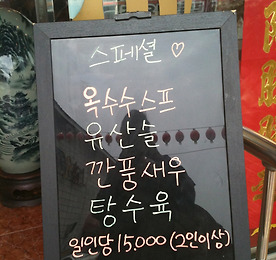 스페셜 ♡
옥수수스프
유산슬
깐풍새우
탕수육
일인당 15,000 (2인이상)